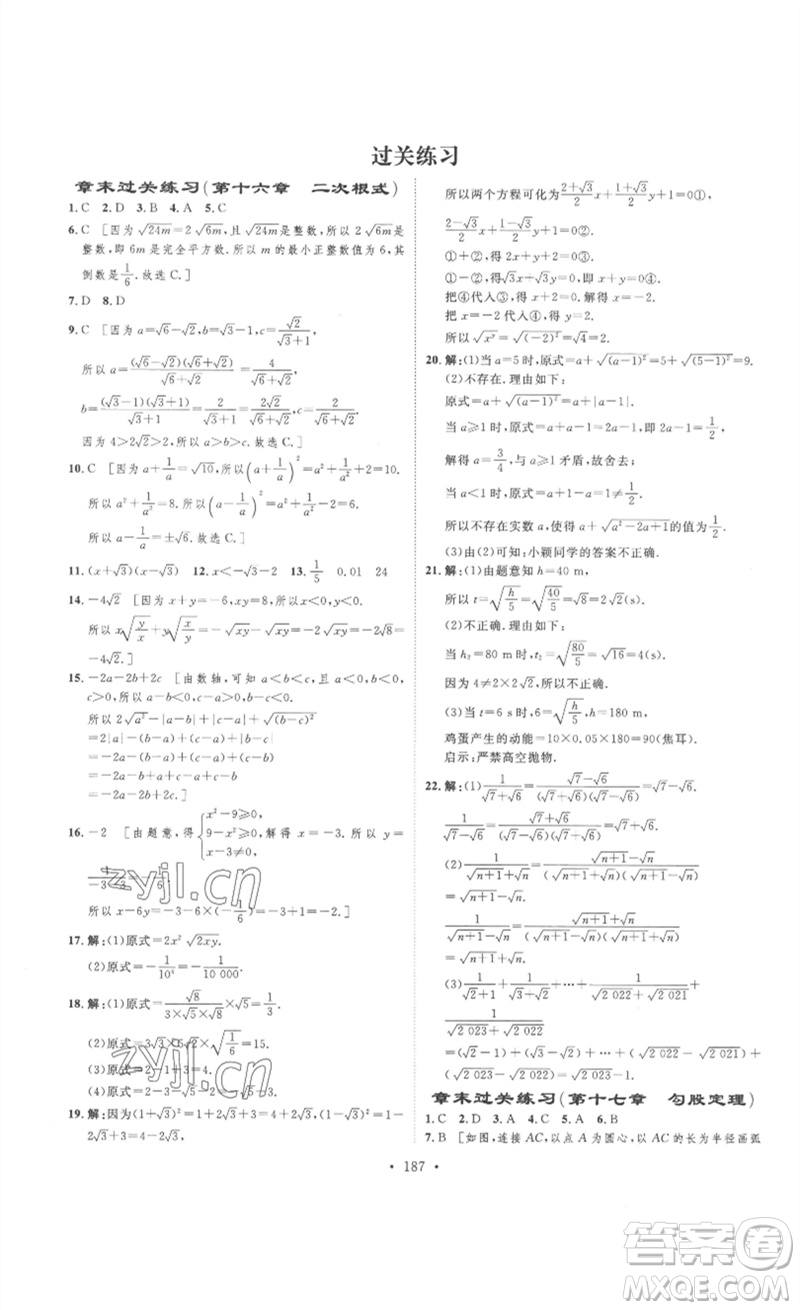 过关练习
章末过关练习(第十六章　二次根式)
1.C　2.D　3.B　4.A　5.C
6.C　[因为√24m=2√6m,且√24m是整数,所以2√6m是
整数,即6m是完全平方数.所以m的最小正整数值为6,其
倒数是1/6.故选C.]
7.D　8.D
9.C　[因为a=√6-√2,b=√3-1,c=√2/(√3+1),
所以a=(√6-√2)(√6+√2)/(√6+√2)=4/(√6+√2),
b=(√3-1)(√3+1)/(√3+1)=2/(√3+1)=2√2/(√6+√2).
因为4>2√2>2,所以a>b>c.故选C.]
10.C　[因为a+1/a=√10,所以(a+1/a)²=a²+1/a²+2=10.
所以a²+1/a²=8.所以(a-1/a)²=a²+1/a²-2=6.
所以a-1/a=±√6.故选C.]
11.(x+√3)(x-√3)　12.x<-√3-2　13.1/5　0.01　24
14.-4√2　[因为x+y=-6,xy=8,所以x<0,y<0.
所以x√(y/x)+y√(x/y)=-√xy-√xy=-2√xy=-2√8=
-4√2.]
15.-2a-2b+2c　[由数轴,可知a<b<c,且a<0,b<0,
c>0.所以a-b<0,b-c<0,a-c<0.
所以2√a²-|a-b|+|c-a|+√(b-c)²
=2|a|-(b-a)+(c-a)+|b-c|
=-2a-b+a+c-a+c-b
=-2a-2b+2c.]
16.-2　[由题意,得{x²-9≥0, 9-x²≥0, x-3≠0,解得x=-3.所以y=
所以x-6y=-3-6×(-1/6)=-3+1=-2.]
17.解:(1)原式=2x²√2xy.
(2)原式=-1/10⁴=-1/10 000.
18.解:(1)原式=√8/(3×√5×√2)×√5=1/3.
(2)原式=15.
(4)原式=6-4√3+2+4√3-6=2.
19.解:因为(1+√3)²=1+2√3+3=4+2√3,(1-√3)²=1-
2√3+3=4-2√3,
所以两个方程可化为(2+√3)/2x+√3/2y=0①,
(2-√3)/2x-√3/2y=0②.
①+②,得2x+√3y=0③.
①-②,得√3x+2y=2④.
把④代入③,得x+2=0.解得x=-2.
把x=-2代入④,得y=2.
所以√xʸ=√(-2)²=√4=2.
20.解:(1)当a=5时,原式=a+√(a-1)²=5+√(5-1)²=9.
(2)不存在.理由如下:
原式=a+√(a-1)²=a+|a-1|.
当a≥1时,原式=a+a-1=2a-1=1/2.
解得a=3/4,与a≥1矛盾,故舍去;
当a<1时,原式=a+1-a=1≠1/2.
所以不存在实数a,使得a+√a²-2a+1的值为1/2.
(3)由(2)可知:小颖同学的答案不正确.
21.解:(1)由题意知h=40 m,
所以t=√(h/5)=√(40/5)=√8=2√2(s).
(2)不正确.理由如下:
当h₂=80 m时,t₂=√(80/5)=√16=4(s).
因为4≠2×2√2,所以不正确.
(3)当t=6 s时,6=√(h/5),h=180 m,
鸡蛋产生的动能=10×0.05×180=90(焦耳).
启示:严禁高空抛物.
22.解:(1)1/(√7+√6)=(√7-√6)/((√7+√6)(√7-√6))=√7-√6.
1/(√7-√6)=(√7+√6)/((√7-√6)(√7+√6))=√7+√6.
(2)1/(√n+1+√n)=(√n+1-√n)/((√n+1+√n)(√n+1-√n))=
√n+1-√n.
1/(√n+1-√n)=(√n+1+√n)/((√n+1-√n)(√n+1+√n))=
√n+1+√n.
(3)1/(√2+1)+1/(√3+√2)+⋯+1/(√2 022+√2 021)+
1/(√2 023+√2 022)
=(√2-1)+(√3-√2)+⋯+(√2 022-√2 021)+
(√2 023-√2 022)=√2 023-1.
章末过关练习(第十七章　勾股定理)
1.C　2.D　3.A　4.C　5.A　6.B
7.B　[如图,连接AC,以点A为圆心,以AC的长为半径画弧
• 187 •
zyjl.cn
zyjl.cn
答案圈
MXQE.COM